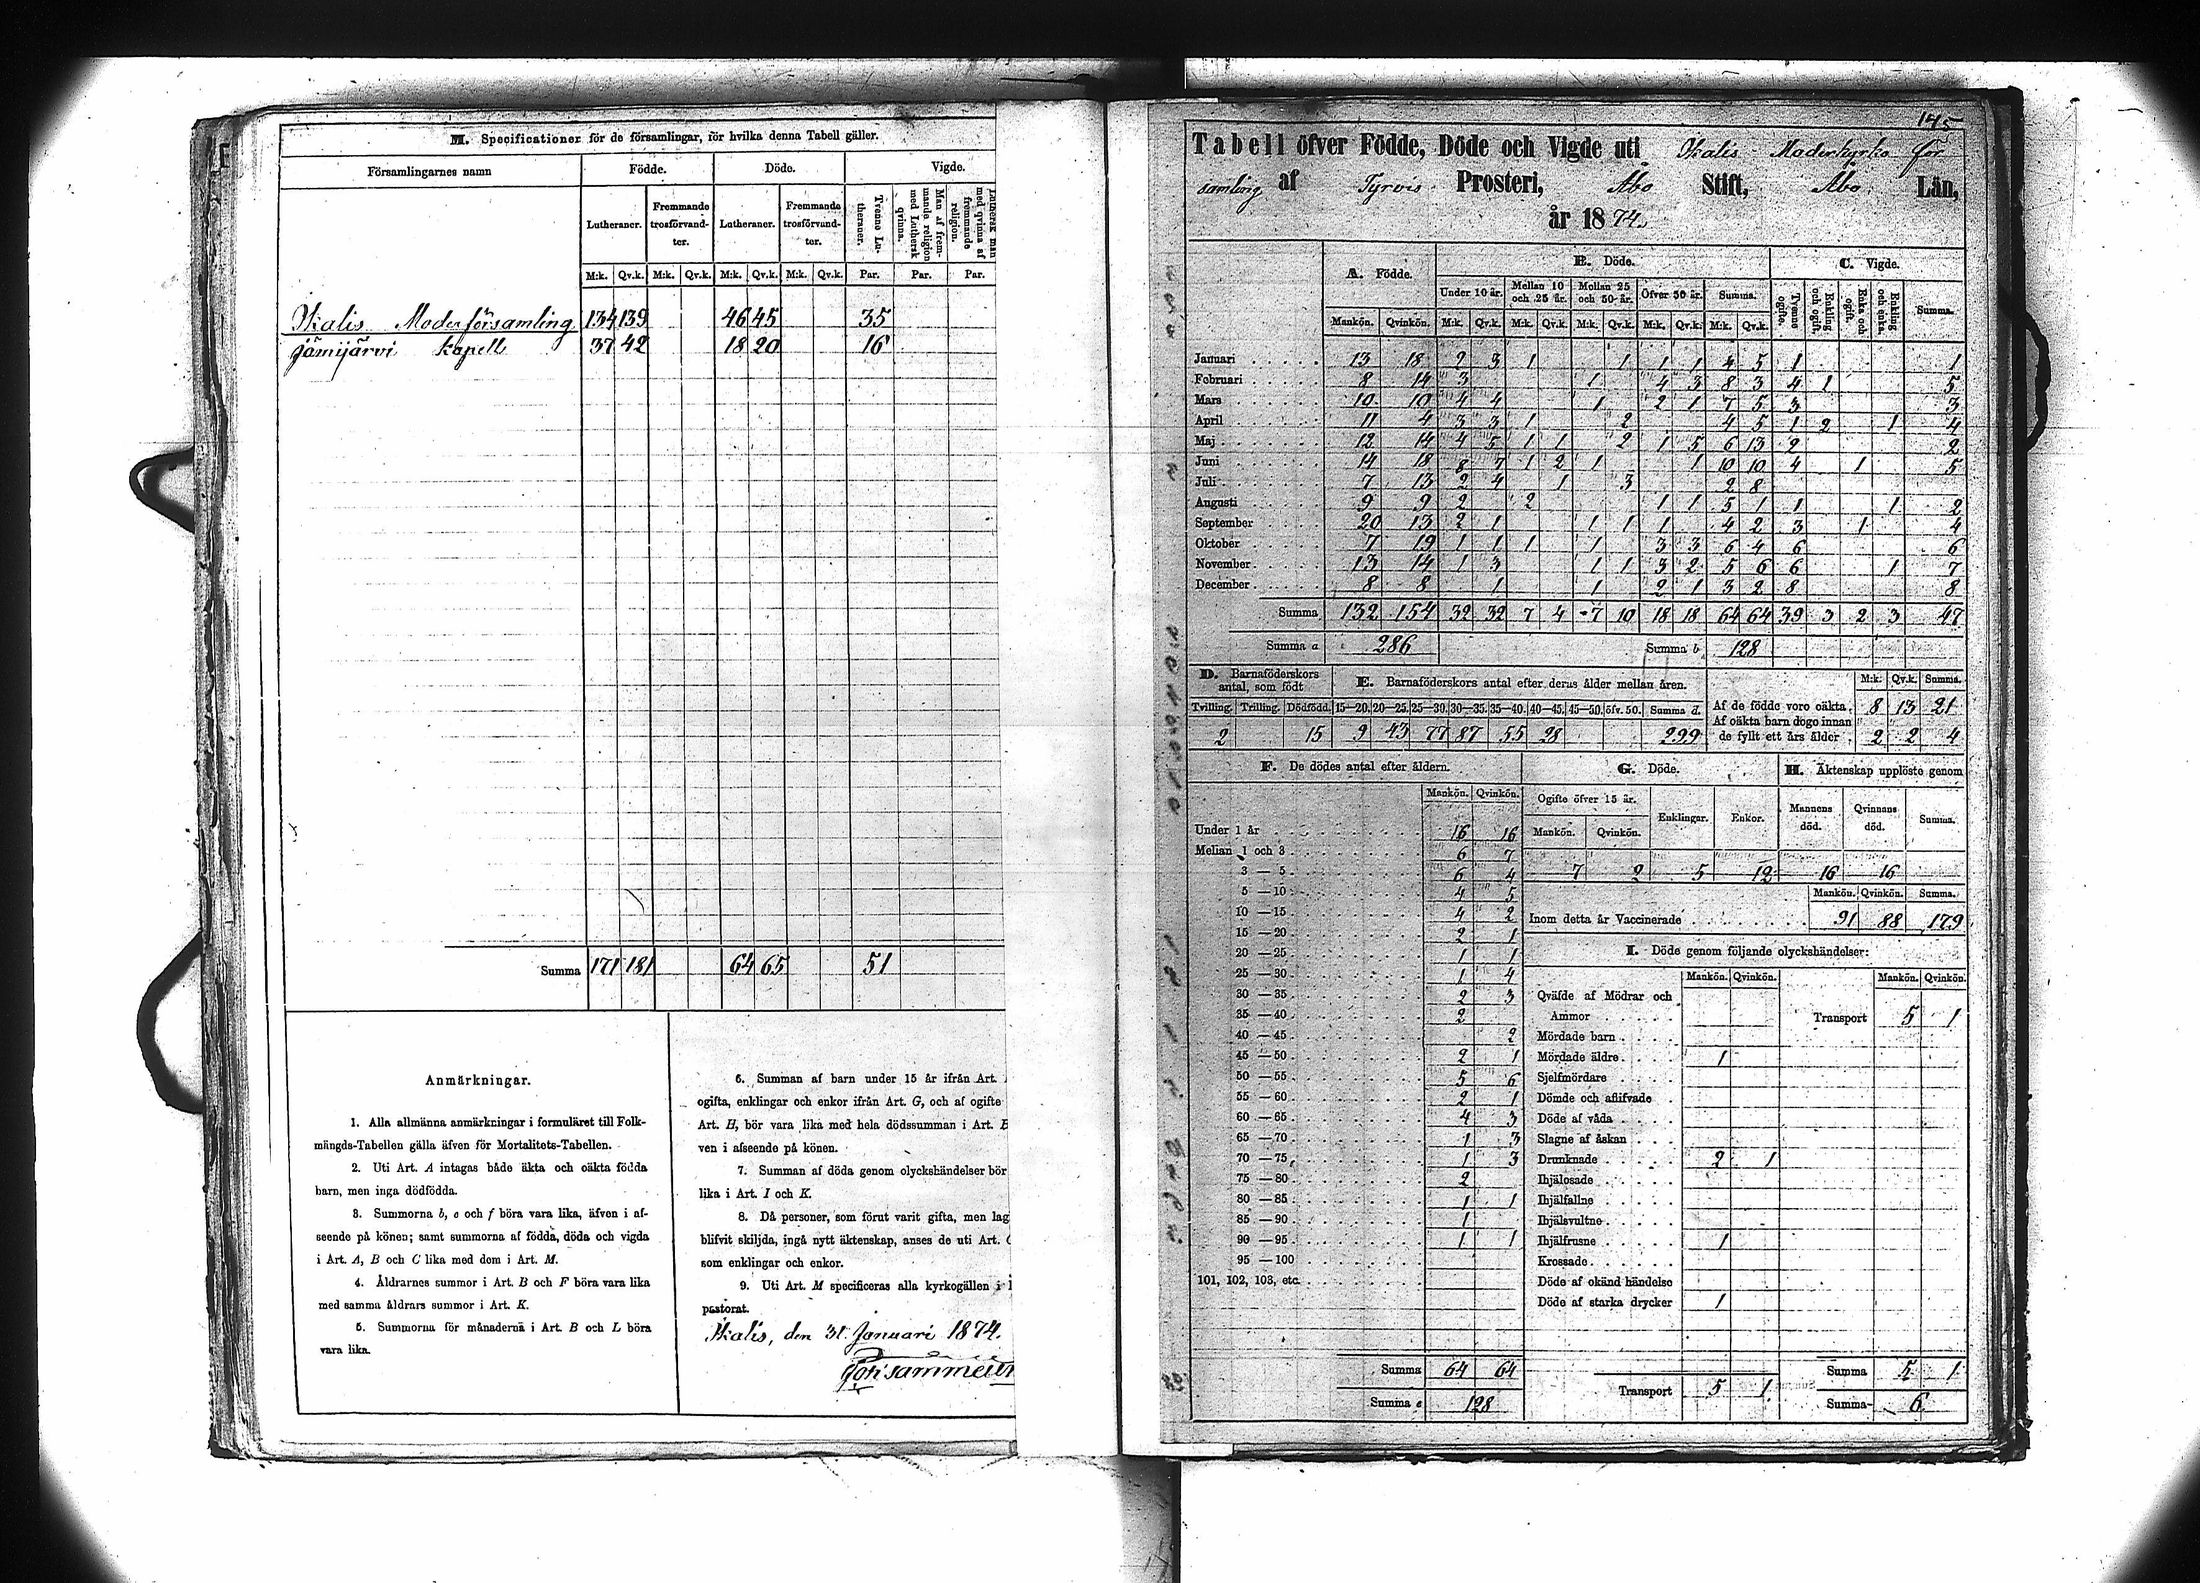 M. Specificationer för de församlingar, för hvilka denna Tabell gäller.
Församlingarnes namn Födde. Döde. Vigde.
Lutheraner. Fremmande trosförvandter. Lutheraner. Fremmande trosförvandter. Tvenne Lutheraner. Man af fremmande religion med Luthersk qvinna. Luthersk man med qvinna af fremmande religion.
M:k. Qv.k. M:k. Qv.k. M:k. Qv.k. M:k. Qv.k. Par. Par. Par.
Ikalis Moderförsamling 134 139 46 45 35
Jämijärvi kapell 37 42 18 20 16
Summa 171 181 64 65 51
Anmärkningar.
1. Alla allmänna anmärkningar i formuläret till Folk-
mängds-Tabellen gälla äfven för Mortalitets-Tabellen.
2. Uti Art. A intagas både äkta och oäkta födda
barn, men inga dödfödda.
3. Summorna b, c och f böra vara lika, äfven i af-
seende på könen; samt summorna af födda, döda och vigda
i Art. A, B och C lika med dom i Art. M.
4. Åldrarnes summor i Art. B och F böra vara lika
med samma åldrars summor i Art. K.
5. Summorna för månaderna i Art. B och L böra
vara lika.
6. Summan af barn under 15 år ifrån Art.
ogifta, enklingar och enkor ifrån Art. G, och af ogifte
Art. H, bör vara lika med hela dödssumman i Art. B
ven i afseende på könen.
7. Summan af döda genom olyckshändelser bör
lika i Art. I och K.
8. Då personer, som förut varit gifta, men lag
blifvit skiljda, ingå nytt äktenskap, anses de uti Art. C
som enklingar och enkor.
9. Uti Art. M specificeras alla kyrkogällen i
pastorat.
Ikalis, den 31 Januari 1874.
145
Tabell öfver Födde, Döde och Vigde uti Ikalis Moderkyrko för
samling af Tyrvis Prosteri, Åbo Stift, Åbo Län,
år 1874.
A. Födde. B. Döde. C. Vigde.
Under 10 år. Mellan 10 och 25 år. Mellan 25 och 50 år. Öfver 50 år. Summa. Tvenne ogifte. Enkling och ogift. Enka och ogift. Enkling och enka. Summa.
Mankön. Qvinkön. M:k. Qv.k. M:k. Qv.k. M:k. Qv.k. M:k. Qv.k. M:k. Qv.k.
Januari 13 18 2 3 1 1 1 1 4 5 1 1
Februari 8 14 3 1 4 3 8 3 4 1 5
Mars 10 10 4 4 1 2 1 7 5 3 3
April 11 4 3 3 1 2 4 5 1 2 1 4
Maj 12 14 4 5 1 1 2 1 5 6 13 2 2
Juni 14 18 8 7 1 2 1 1 10 10 4 1 5
Juli 7 13 2 4 1 3 2 8
Augusti 9 9 2 2 1 1 5 1 1 1 2
September 20 13 2 1 1 1 1 4 2 3 1 4
Oktober 7 19 1 1 1 1 3 3 6 4 6 6
November 13 14 1 3 1 1 3 2 5 6 6 1 7
December 8 8 1 1 2 1 3 2 8 8
Summa 132 154 32 32 7 4 7 10 18 18 64 64 39 3 2 3 47
Summa a 286 Summa b 128
D. Barnaföderskors antal, som födt E. Barnaföderskors antal efter deras ålder mellan åren. M:k. Qv.k. Summa.
Tvilling. Trilling. Dödfödd. 15—20. 20—25. 25—30. 30—35. 35—40. 40—45. 45—50. öfv. 50. Summa d.
2 15 9 43 77 87 55 28 299
Af de födde voro oäkta 8 13 21
Af oäkta barn dogo innan
de fyllt ett års ålder 2 2 4
F. De dödes antal efter åldern.
Mankön. Qvinkön.
Under 1 år 16 16
Mellan 1 och 3 6 7
3 — 5 6 4
5 — 10 4 5
10 — 15 4 2
15 — 20 2 1
20 — 25 1 1
25 — 30 1 4
30 — 35 2 3
35 — 40 2
40 — 45 2
45 — 50 2 1
50 — 55 5 6
55 — 60 2 1
60 — 65 4 3
65 — 70 1 3
70 — 75 1 3
75 — 80 2
80 — 85 1 1
85 — 90 1
90 — 95 1 1
95 — 100
101, 102, 103, etc.
Summa 64 64
Summa c 128
G. Döde. H. Äktenskap upplöste genom
Ogifte öfver 15 år. Enklingar. Enkor. Mannens död. Qvinnans död. Summa.
Mankön. Qvinkön.
7 2 5 12 16 16
Mankön. Qvinkön. Summa.
Inom detta år Vaccinerade 91 88 179
I. Döde genom följande olyckshändelser:
Mankön. Qvinkön. Mankön. Qvinkön.
Qväfde af Mödrar och
Ammor
Transport 5 1
Mördade barn
Mördade äldre 1
Sjelfmördare
Dömde och aflifvade
Döde af våda
Slagne af åskan
Drunknade 2 1
Ihjälosade
Ihjälfallne
Ihjälsvultne
Ihjälfrusne 1
Krossade
Döde af okänd händelse
Döde af starka drycker 1
Summa 5 1
Transport 5 1
Summa 6